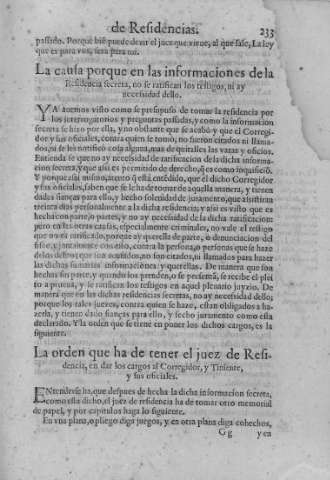 de Residencias. 233
passado. Porque biẽ puede dezir el juez que viene, al que sale, La ley
que es para vos, sera para mi.
La causa porque en las informaciones de la
Residencia secreta, no se ratifican los testigos, ni ay
necessidad dello.
YA auemos visto como se presupuso de tomar la residencia por
los interrogatorios y preguntas passadas, y como la informacion
secreta se hizo por ella, y no obstante que se acabó y que el Corregi-
dor y sus oficiales, contra quien se tomò, no fueron citados ni llama-
dos, ni se les notificò cosa alguna, mas de quitalles las varas y oficios.
Entiendase que no ay necessidad de ratificacion de la dicha informa-
cion secreta, y que assi es permitido de derecho, q̃ es como inquisiciõ.
Y porque assi mismo, atento q̃ està entẽdido, que el dicho Corregidor
y sus oficiales, saben que se les ha de tomar de aquella manera, y tienen
dadas fianças para ello, y hecho solenidad de juramento, que assistiran
treinta dias personalmente a la dicha residencia: y assi es visto que es
hecha con parte, o partes, y no ay necessidad de la dicha ratificacion:
pero en las otras causas, especialmente criminales, no vale el testigo
que no es ratificado, porque ay querella de parte, o denunciacion del
fisco, y juntamente con esto, contra la persona, o personas que se haze
de los delitos que son acusados, no son citados, ni llamados para hazer
las dichas sumarias informaciones y querellas. De manera que son
hechas sin parte, y quando los prenden, o se presentã, se recibe el plei
to a prueua, y se ratifican los testigos en aquel plenario juyzio. De
manera que en las dichas residencias secretas, no ay necessidad dello;
porque los tales juezes, contra quien se haze, estan obligados a ha-
zerla, y tienen dado fianças para ello, y hecho juramento como esta
declarado. Y la orden que se tiene en poner los dichos cargos, es la
siguiente.
La orden que ha de tener el juez de Resi-
dencia, en dar los cargos al Corregidor, y Tiniente,
y sus oficiales.
ENtenderse ha, que despues de hecha la dicha informacion secreta,
como esta dicho, el juez de residencia ha de tomar otro memorial
de papel, y por capitulos haga lo siguiente.
En vna plana, o pliego diga juegos, y en otra plana diga cohechos,
Gg y en